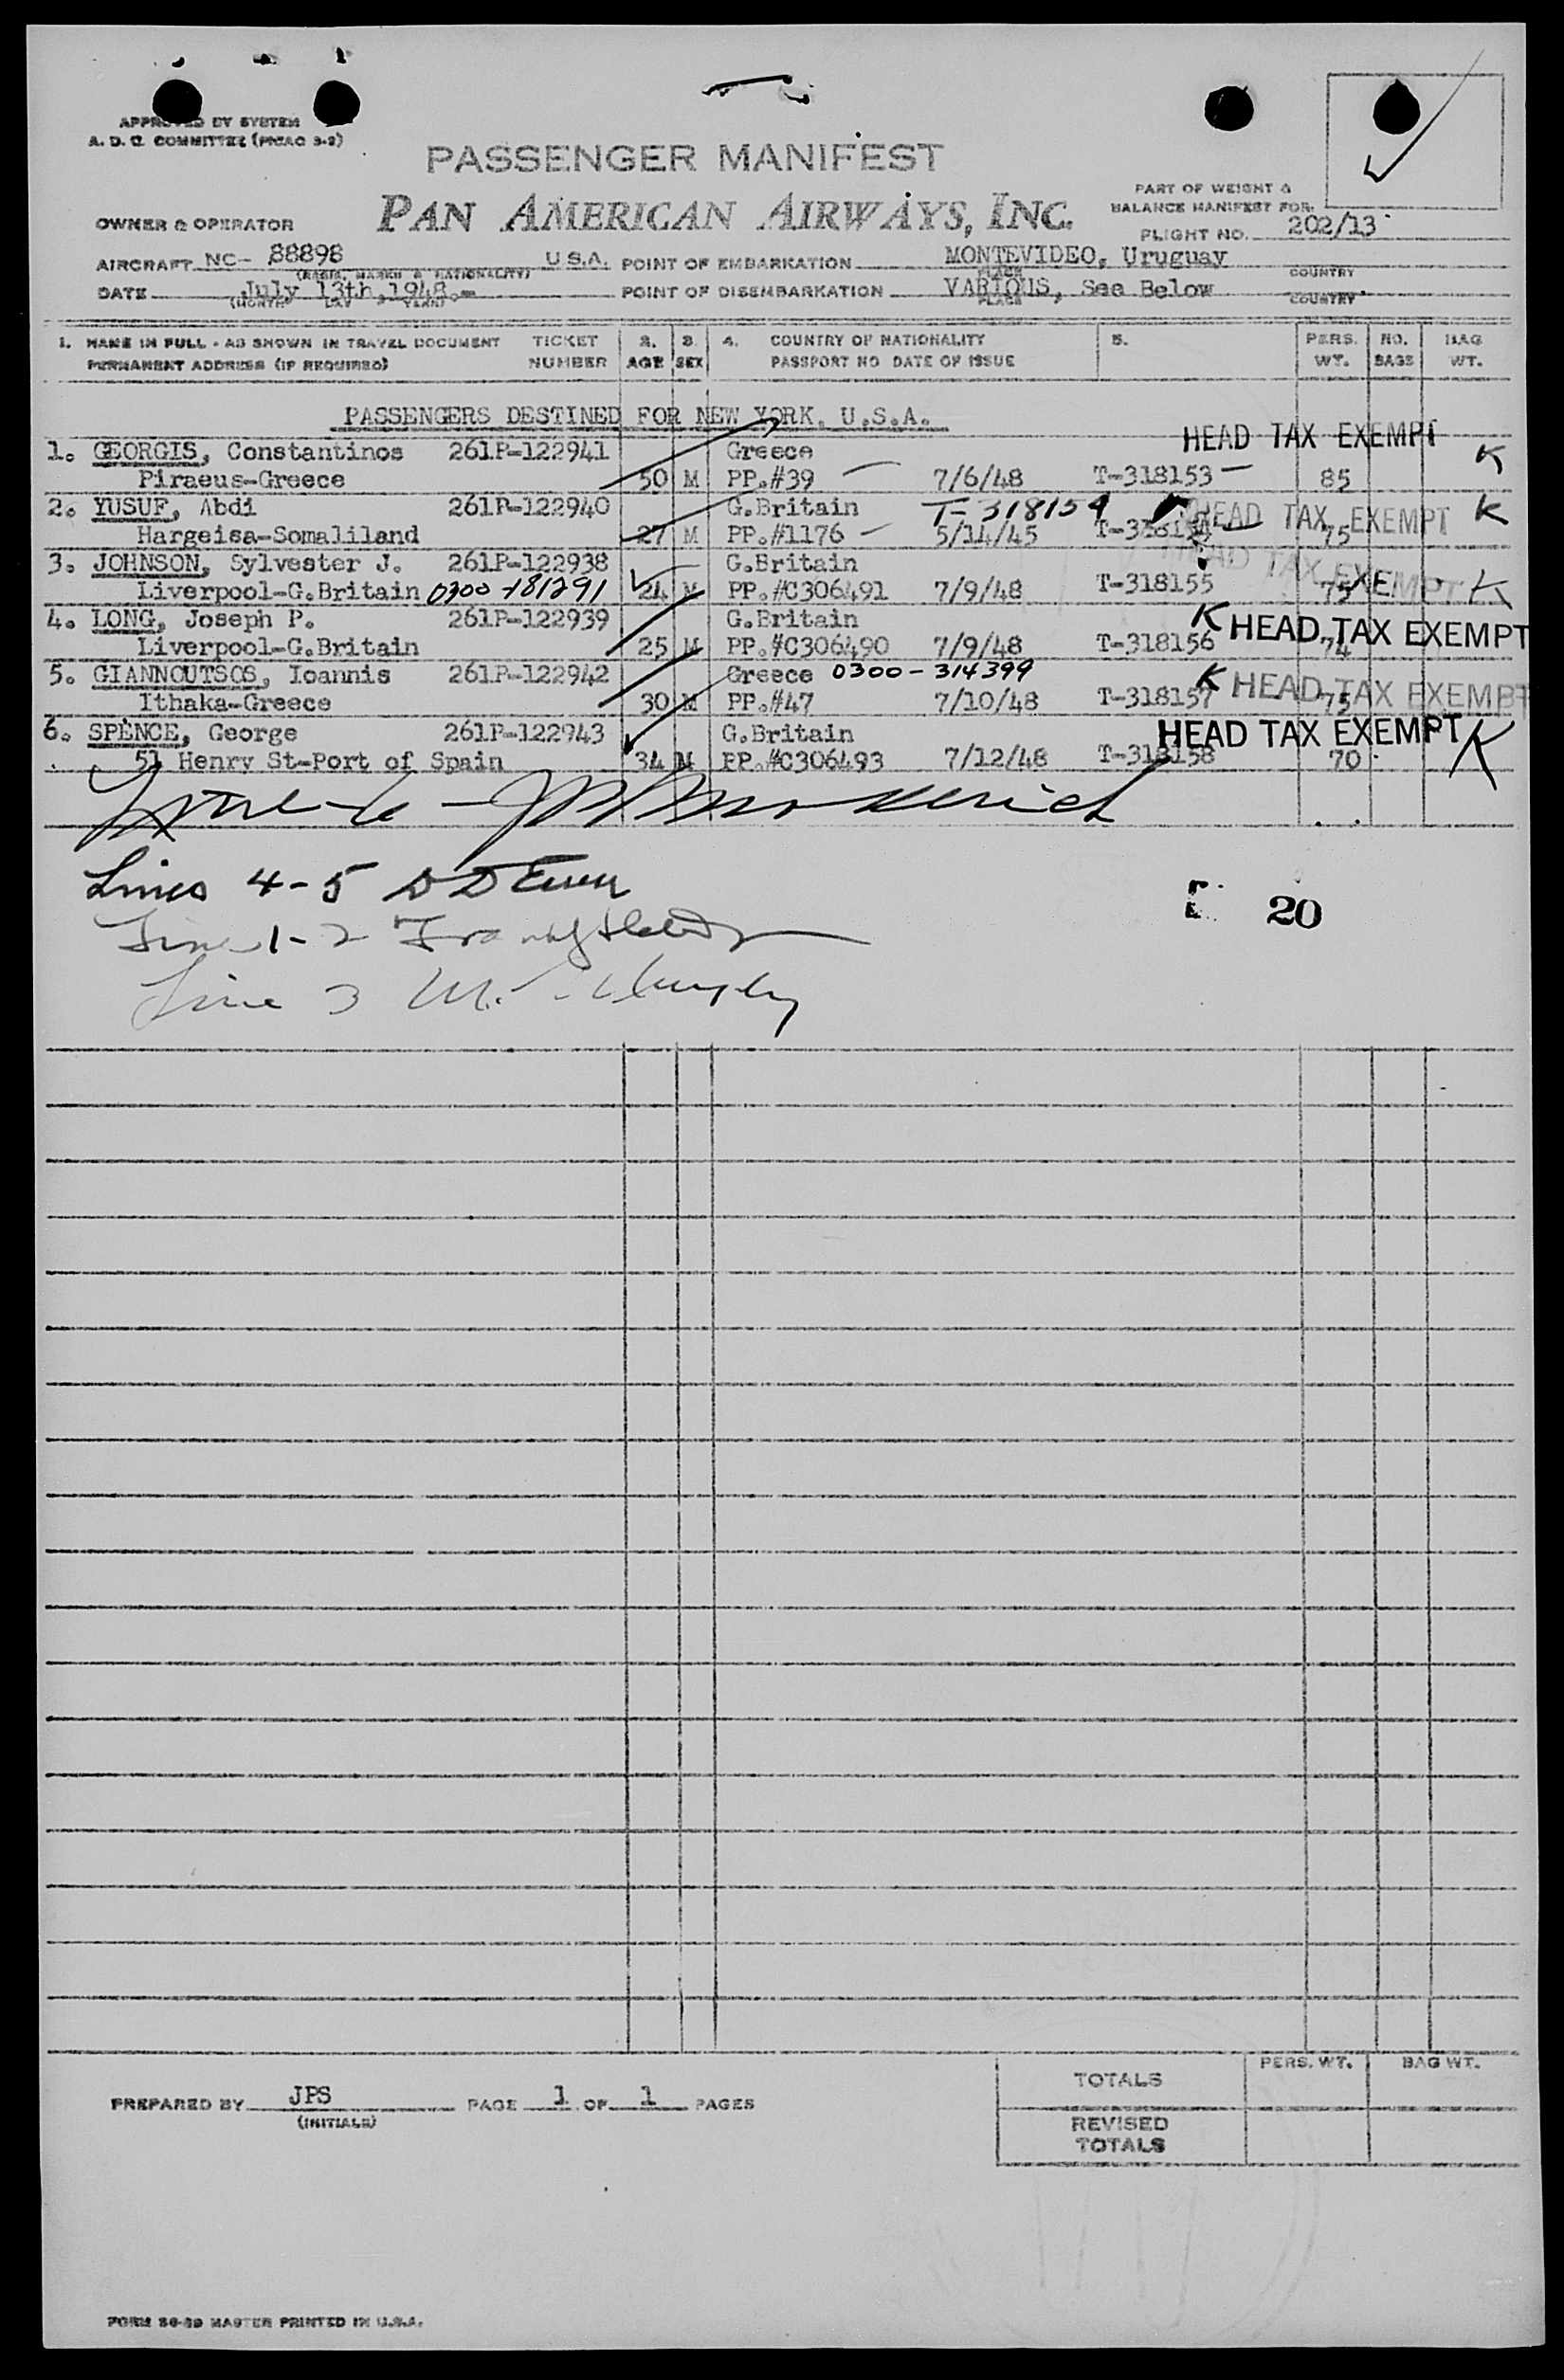 APPROVED BY SYSTEM
A. D. C. COMMITTEE (PICAO 3-2)
PASSENGER MANIFEST
PAN AMERICAN AIRWAYS, INC.
PART OF WEIGHT &
BALANCE MANIFEST FOR:
OWNER & OPERATOR
FLIGHT NO. 202/13
AIRCRAFT NC- 88898 U.S.A. POINT OF EMBARKATION MONTEVIDEO, Uruguay
(BASIC, MARKS & NATIONALITY) PLACE COUNTRY
DATE July 13th, 1948.- POINT OF DISEMBARKATION VARIOUS, See Below
(MONTH DAY YEAR) PLACE COUNTRY
1. NAME IN FULL - AS SHOWN IN TRAVEL DOCUMENT TICKET 2. 3. 4. COUNTRY OF NATIONALITY 5. PERS. NO. BAG
PERMANENT ADDRESS (IF REQUIRED) NUMBER AGE SEX PASSPORT NO DATE OF ISSUE WT. BAGS WT.
PASSENGERS DESTINED FOR NEW YORK, U.S.A.
HEAD TAX EXEMPT
1. GEORGIS, Constantinos 261P-122941 Greece K
Piraeus-Greece 50 M PP.#39 7/6/48 T-318153 85
2. YUSUF, Abdi 261P-122940 G.Britain T-318154 HEAD TAX EXEMPT K
Hargeisa-Somaliland 27 M PP.#1176 5/14/45 75
3. JOHNSON, Sylvester J. 261P-122938 G.Britain HEAD TAX EXEMPT
Liverpool-G.Britain 0300-181291 24 M PP.#C306491 7/9/48 T-318155 75 K
4. LONG, Joseph P. 261P-122939 G.Britain K HEAD TAX EXEMPT
Liverpool-G.Britain 25 M PP.#C306490 7/9/48 T-318156 74
5. GIANNOUTSOS, Ioannis 261P-122942 Greece 0300-314399 K HEAD TAX EXEMPT
Ithaka-Greece 30 M PP.#47 7/10/48 T-318157 75
6. SPENCE, George 261P-122943 G.Britain HEAD TAX EXEMPT K
51 Henry St-Port of Spain 34 M PP.#C306493 7/12/48 T-318158 70
Lines 4-5
20
Line 1-2
Line 3
PERS. WT. BAG WT.
TOTALS
PREPARED BY JPS PAGE 1 OF 1 PAGES
(INITIALS)
REVISED
TOTALS
FORM 36-39 MASTER PRINTED IN U.S.A.